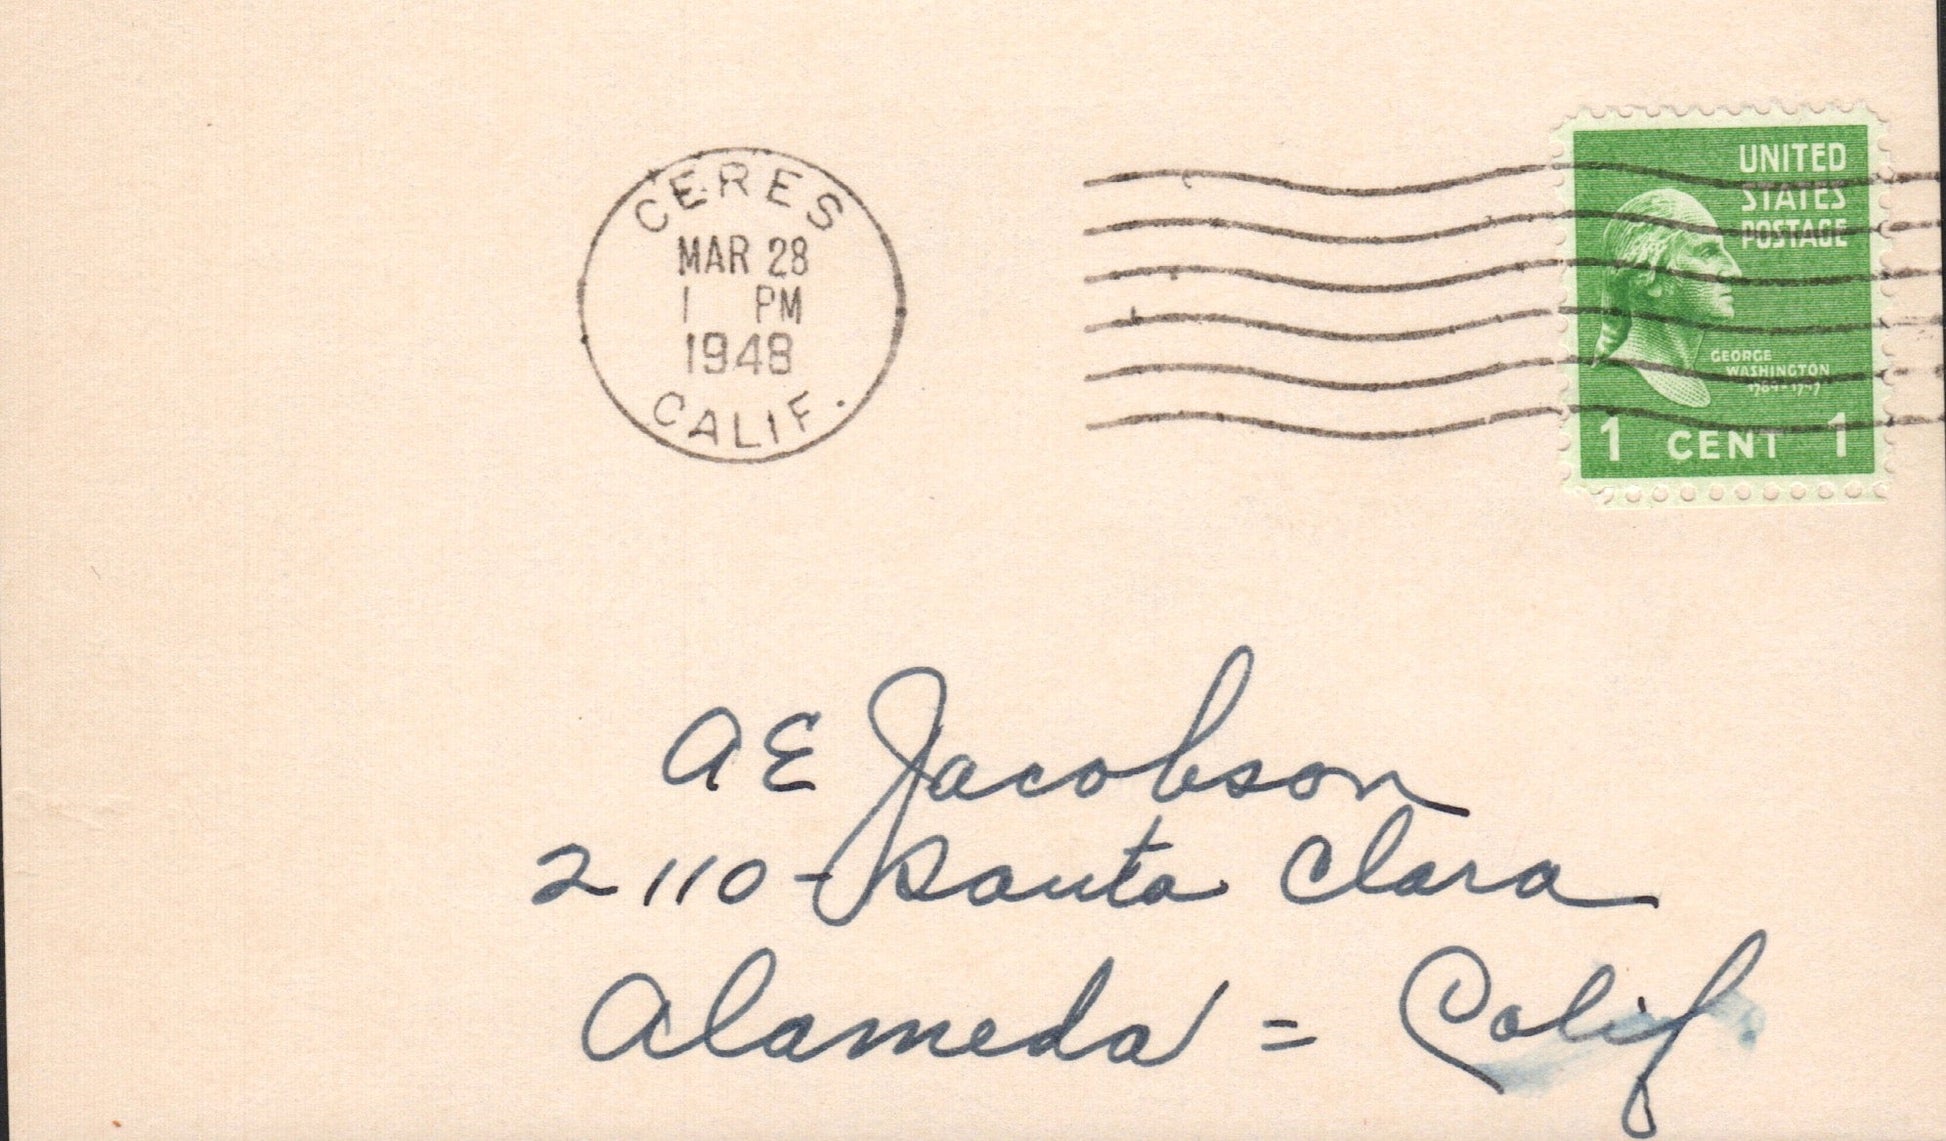 CERES
MAR 28
1 PM
1948
CALIF.
UNITED
STATES
POSTAGE
GEORGE
WASHINGTON
1789-1797
1 CENT 1
A E Jacobson
2110 - Santa Clara
Alameda = Calif